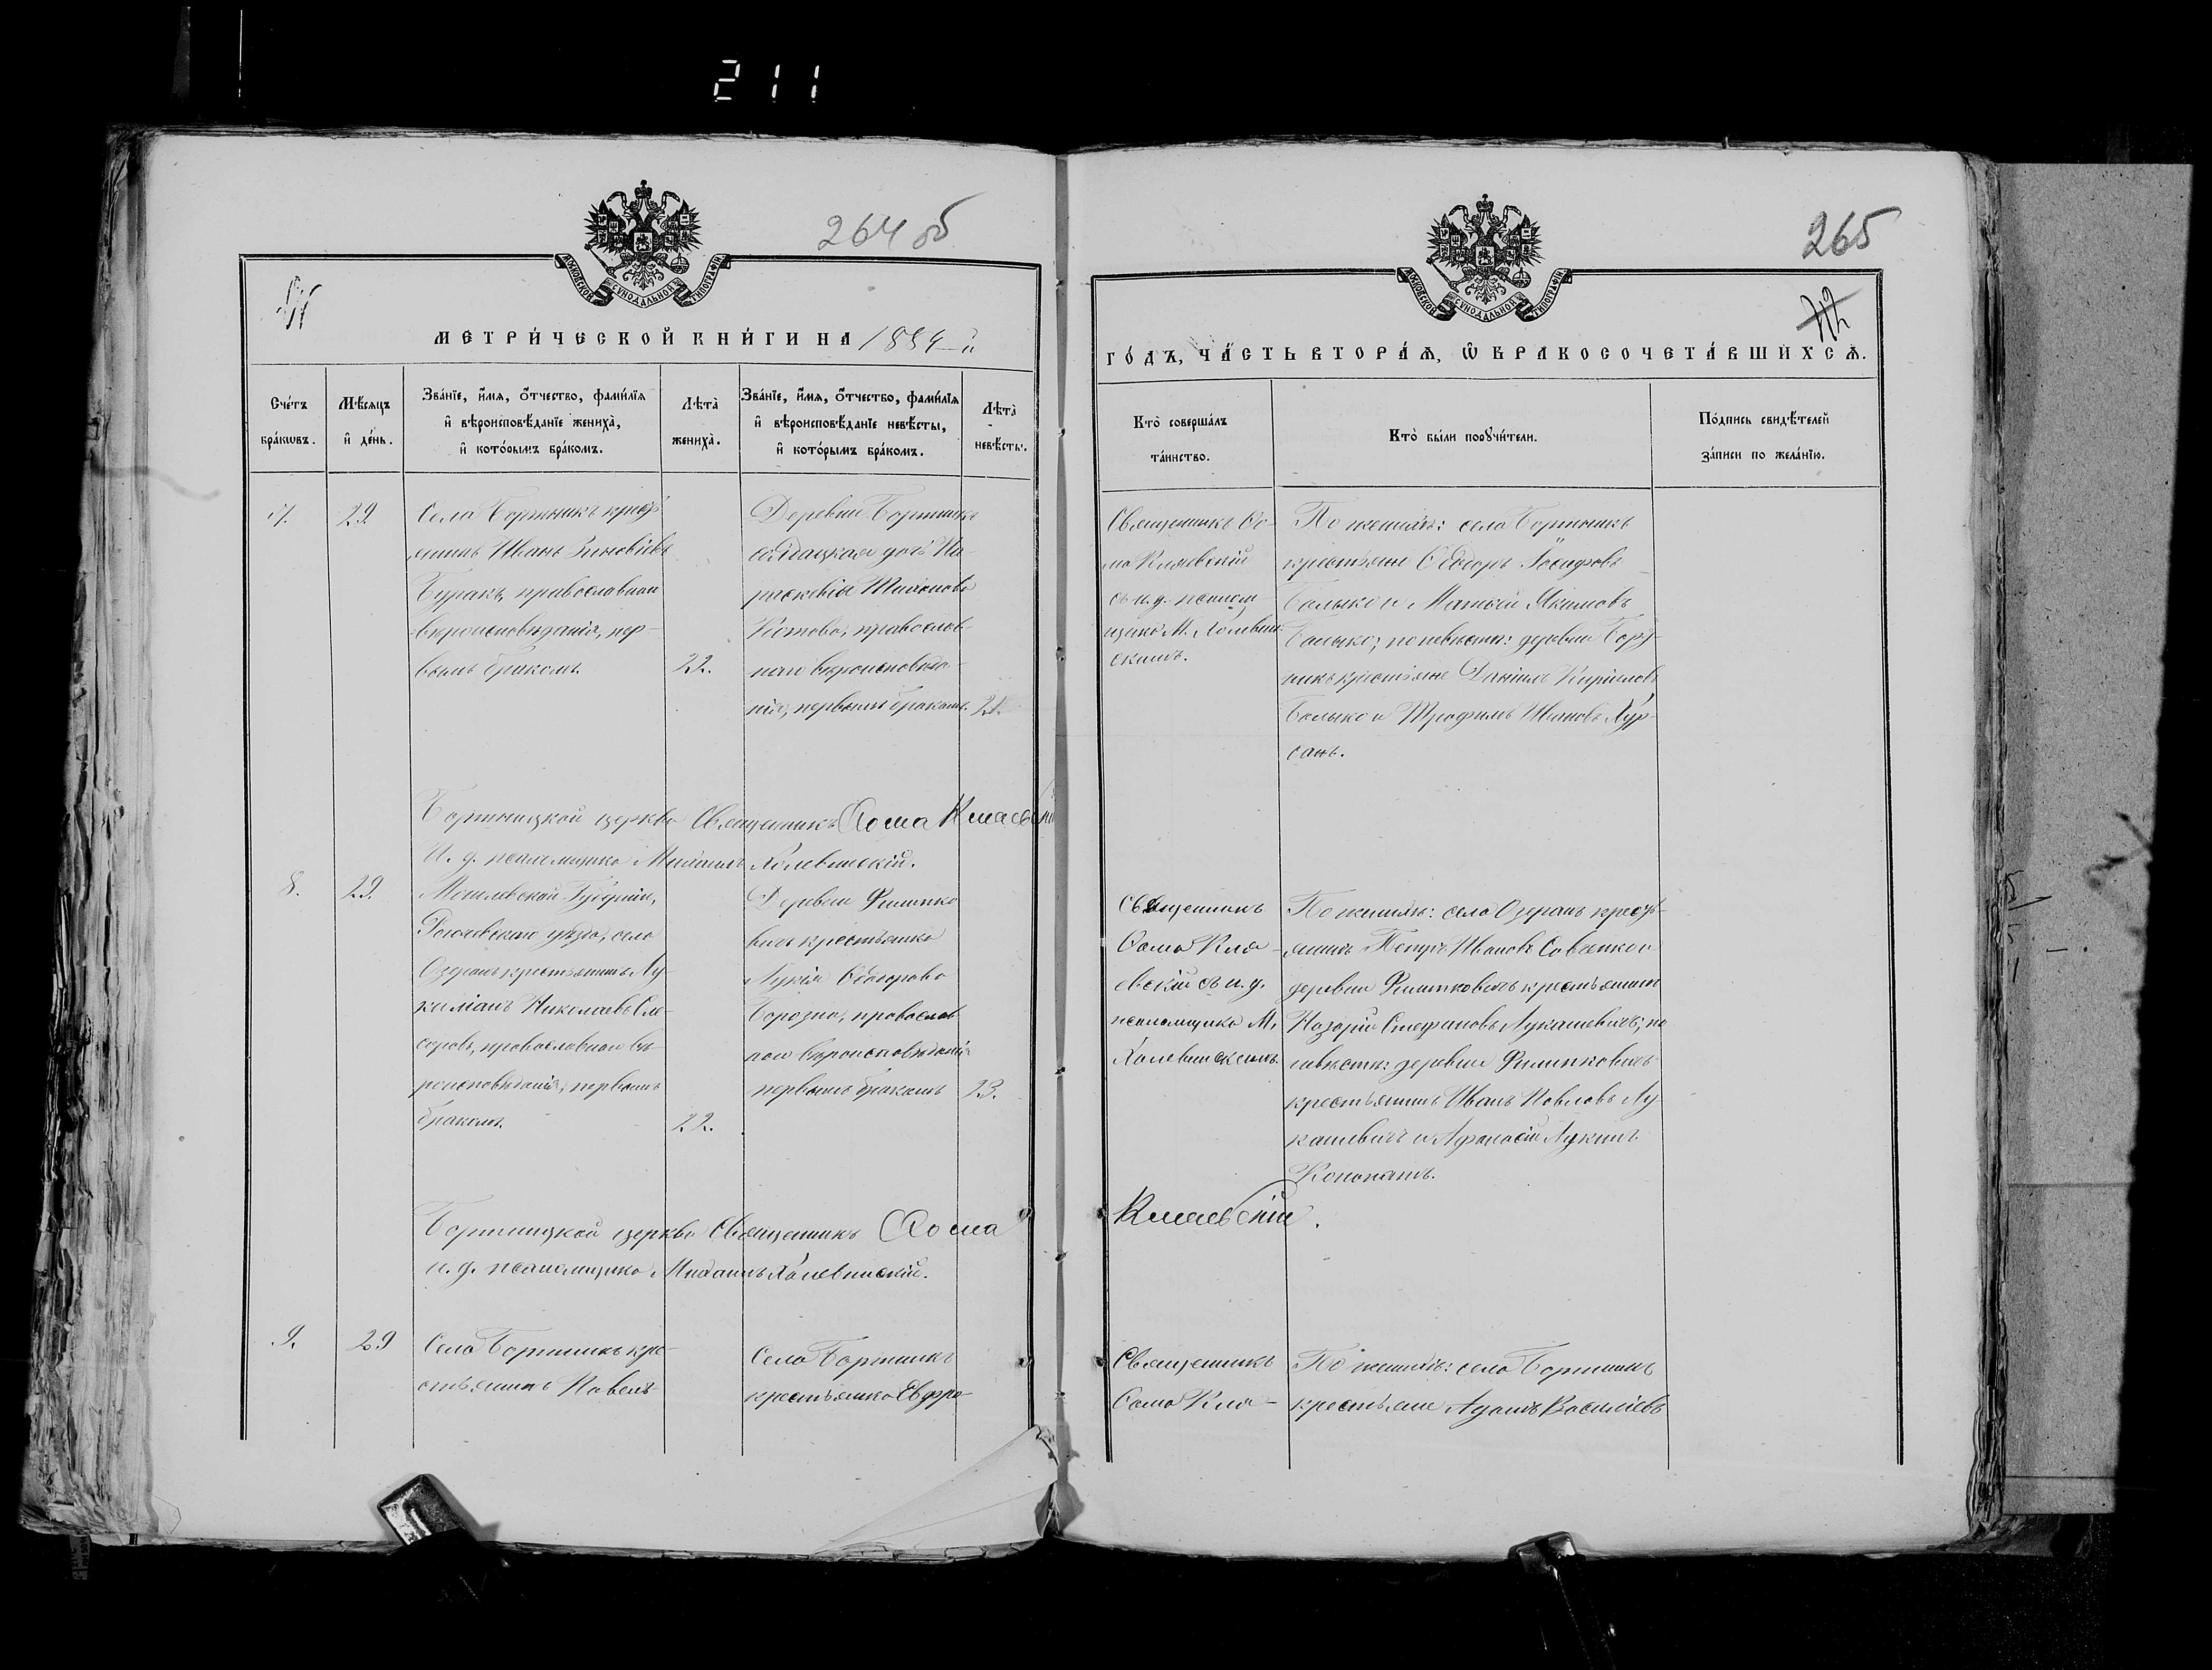 211
264 об
265
МОСКОВСКОЙ СѴНОДАЛЬНОЙ ТИПОГРАФІИ
МОСКОВСКОЙ СѴНОДАЛЬНОЙ ТИПОГРАФІИ
МЕТРИ́ЧЕСКОЙ КНИ́ГИ НА 1884-й
ГО́ДЪ, ЧА́СТЬ ВТОРА́Я, Ѽ БРАКОСОЧЕТА́ВШИХСЯ.
Сче́тъ бра́кѡвъ.
Мѣ́сяцъ и де́нь.
Зва́нїе, и́мя, о́тчество, фами́лїя
и вѣроисповѣ́данїе жениха̀,
и кото́рымъ бра́комъ.
Лѣта̀ жениха̀.
Зва́нїе, и́мя, о́тчество, фами́лїя
и вѣроисповѣ́данїе невѣ́сты,
и кото́рымъ бра́комъ.
Лѣта̀ невѣ́сты.
Кто̀ соверша́лъ та́инство.
Кто̀ бы́ли порꙋчи́тели.
По́дпись свидѣ́телей за́писи по жела́нїю.
7.
29.
Села Бортникъ крест
янинъ Иванъ Зиновіевъ
Буракъ, православнаго
вѣроисповѣданія, пер-
вымъ бракомъ.
22.
Деревни Бортникъ
солдацкая дочь Па-
раскевія Тихонова
Котова, православ
наго вѣроисповѣда-
нія, первымъ бракомъ.
21.
Священникъ Ѳо-
ма Кляевскій
съ и. д. псалом-
щика М. Холевин-
скимъ.
По женихѣ: села Бортникъ
крестьяне Ѳеодоръ Іосифовъ
Балыко и Матѳей Якимовъ
Балыко; по невѣстѣ: деревни Борт-
никъ крестьяне Даніилъ Кириловъ
Балыко и Трофимъ Ивановъ Хур-
санъ.
Бортницкой церкви Священникъ Ѳома Кляевскій
И. д. псаломщика Михаилъ Холевинскій.
8.
29.
Могилевской Губерніи,
Рогачевскаго уѣзда, села
Озеранъ крестьянинъ Лу-
киліанъ Николаевъ Сле-
саревъ, православнаго вѣ-
роисповѣданія, первымъ
бракомъ.
22.
Деревни Филипко
вичъ крестьянка
Лукія Ѳеодорова
Борозна, православ
наго вѣроисповѣданія
первымъ бракомъ
23.
Священникъ
Ѳома Кля-
евскій съ и. д.
псаломщика М.
Холевинскимъ.
По женихѣ: села Озеранъ крест-
янинъ Петръ Ивановъ Савенко и
деревни Филипковичъ крестьянинъ
Назарій Стефановъ Лукашевичъ; по
невѣстѣ: деревни Филипковичъ
крестьянинъ Иванъ Павловъ Лу
кашевичъ и Афанасій Лукинъ
Конопацкъ.
Бортницкой церкви Священникъ Ѳома Кляевскій.
и. д. псаломщика Михаилъ Холевинскій.
9.
29
Села Бортникъ кре-
стьянинъ Павелъ
Села Бортникъ
крестьянка Евфро-
Священникъ
Ѳома Кля-
По женихѣ: села Бортникъ
крестьяне Адамъ Василіевъ